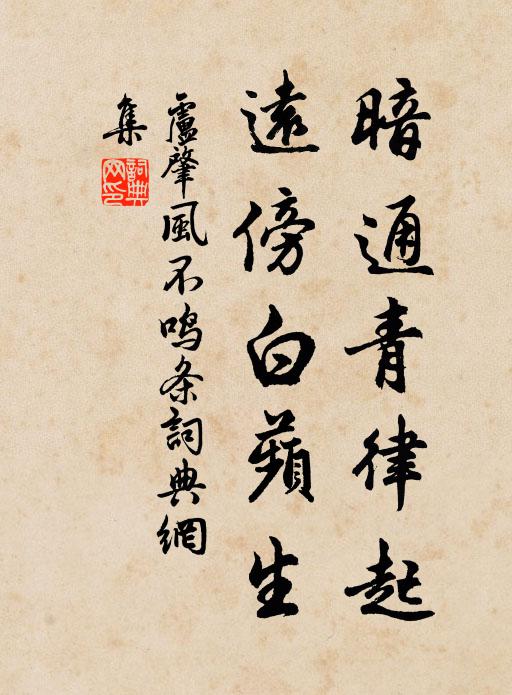 暗通青律起
遠傍白蘋生
盧肇風不鸣条詞典網
集
詞典
网印